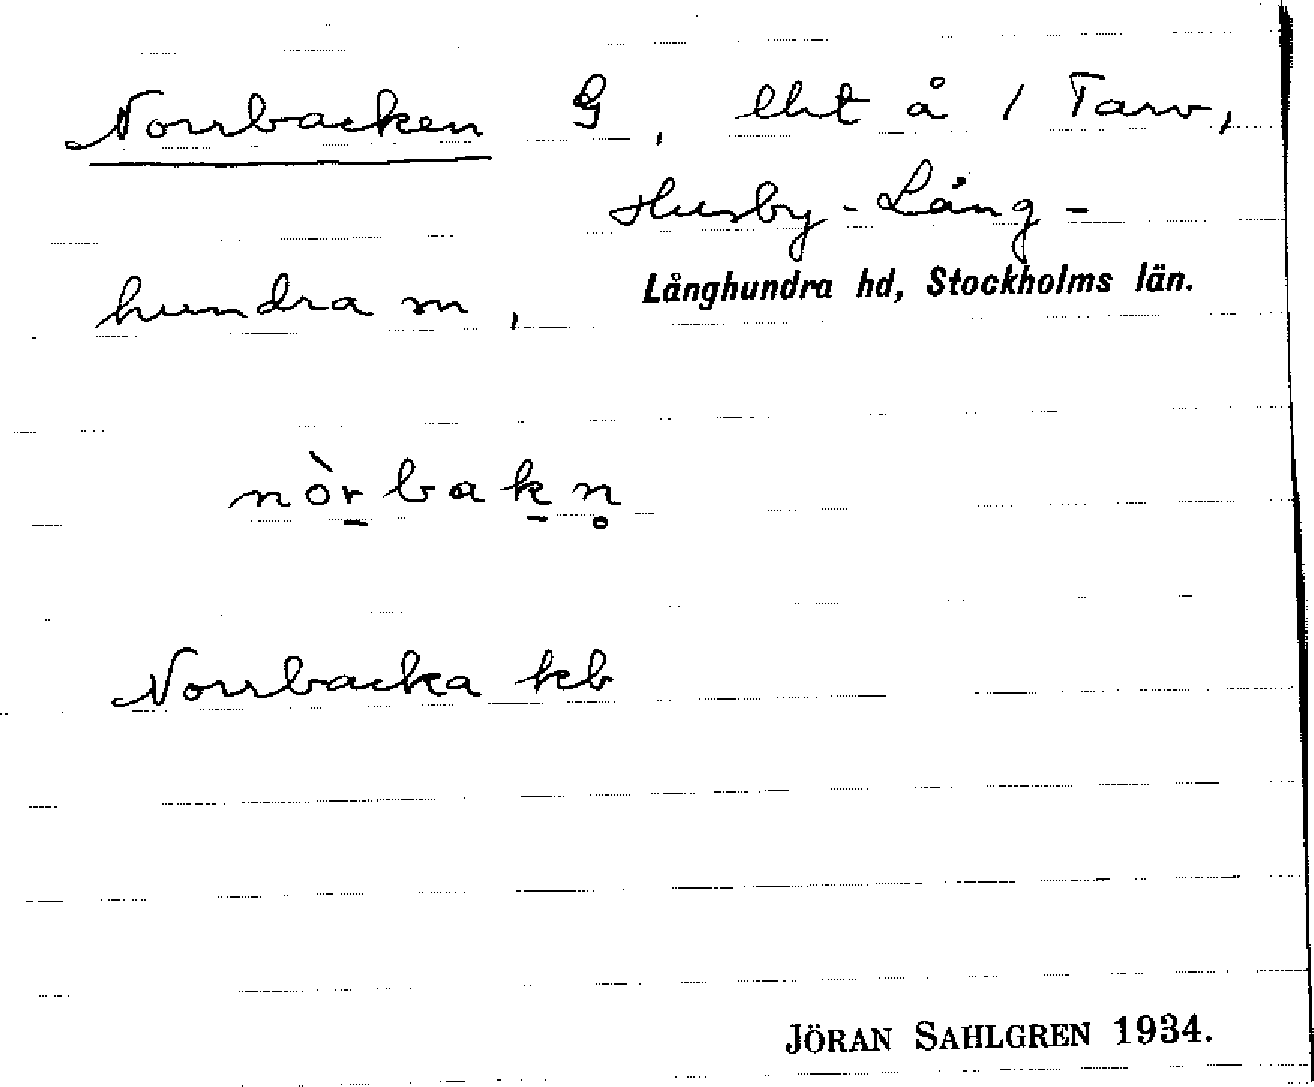 Norrbacken G, lht å 1 Tarv,
Husby-Lång-
hundra sn, Långhundra hd, Stockholms län.
nòr̠bak̠n̥
Norrbacka kb
JÖRAN SAHLGREN 1934.